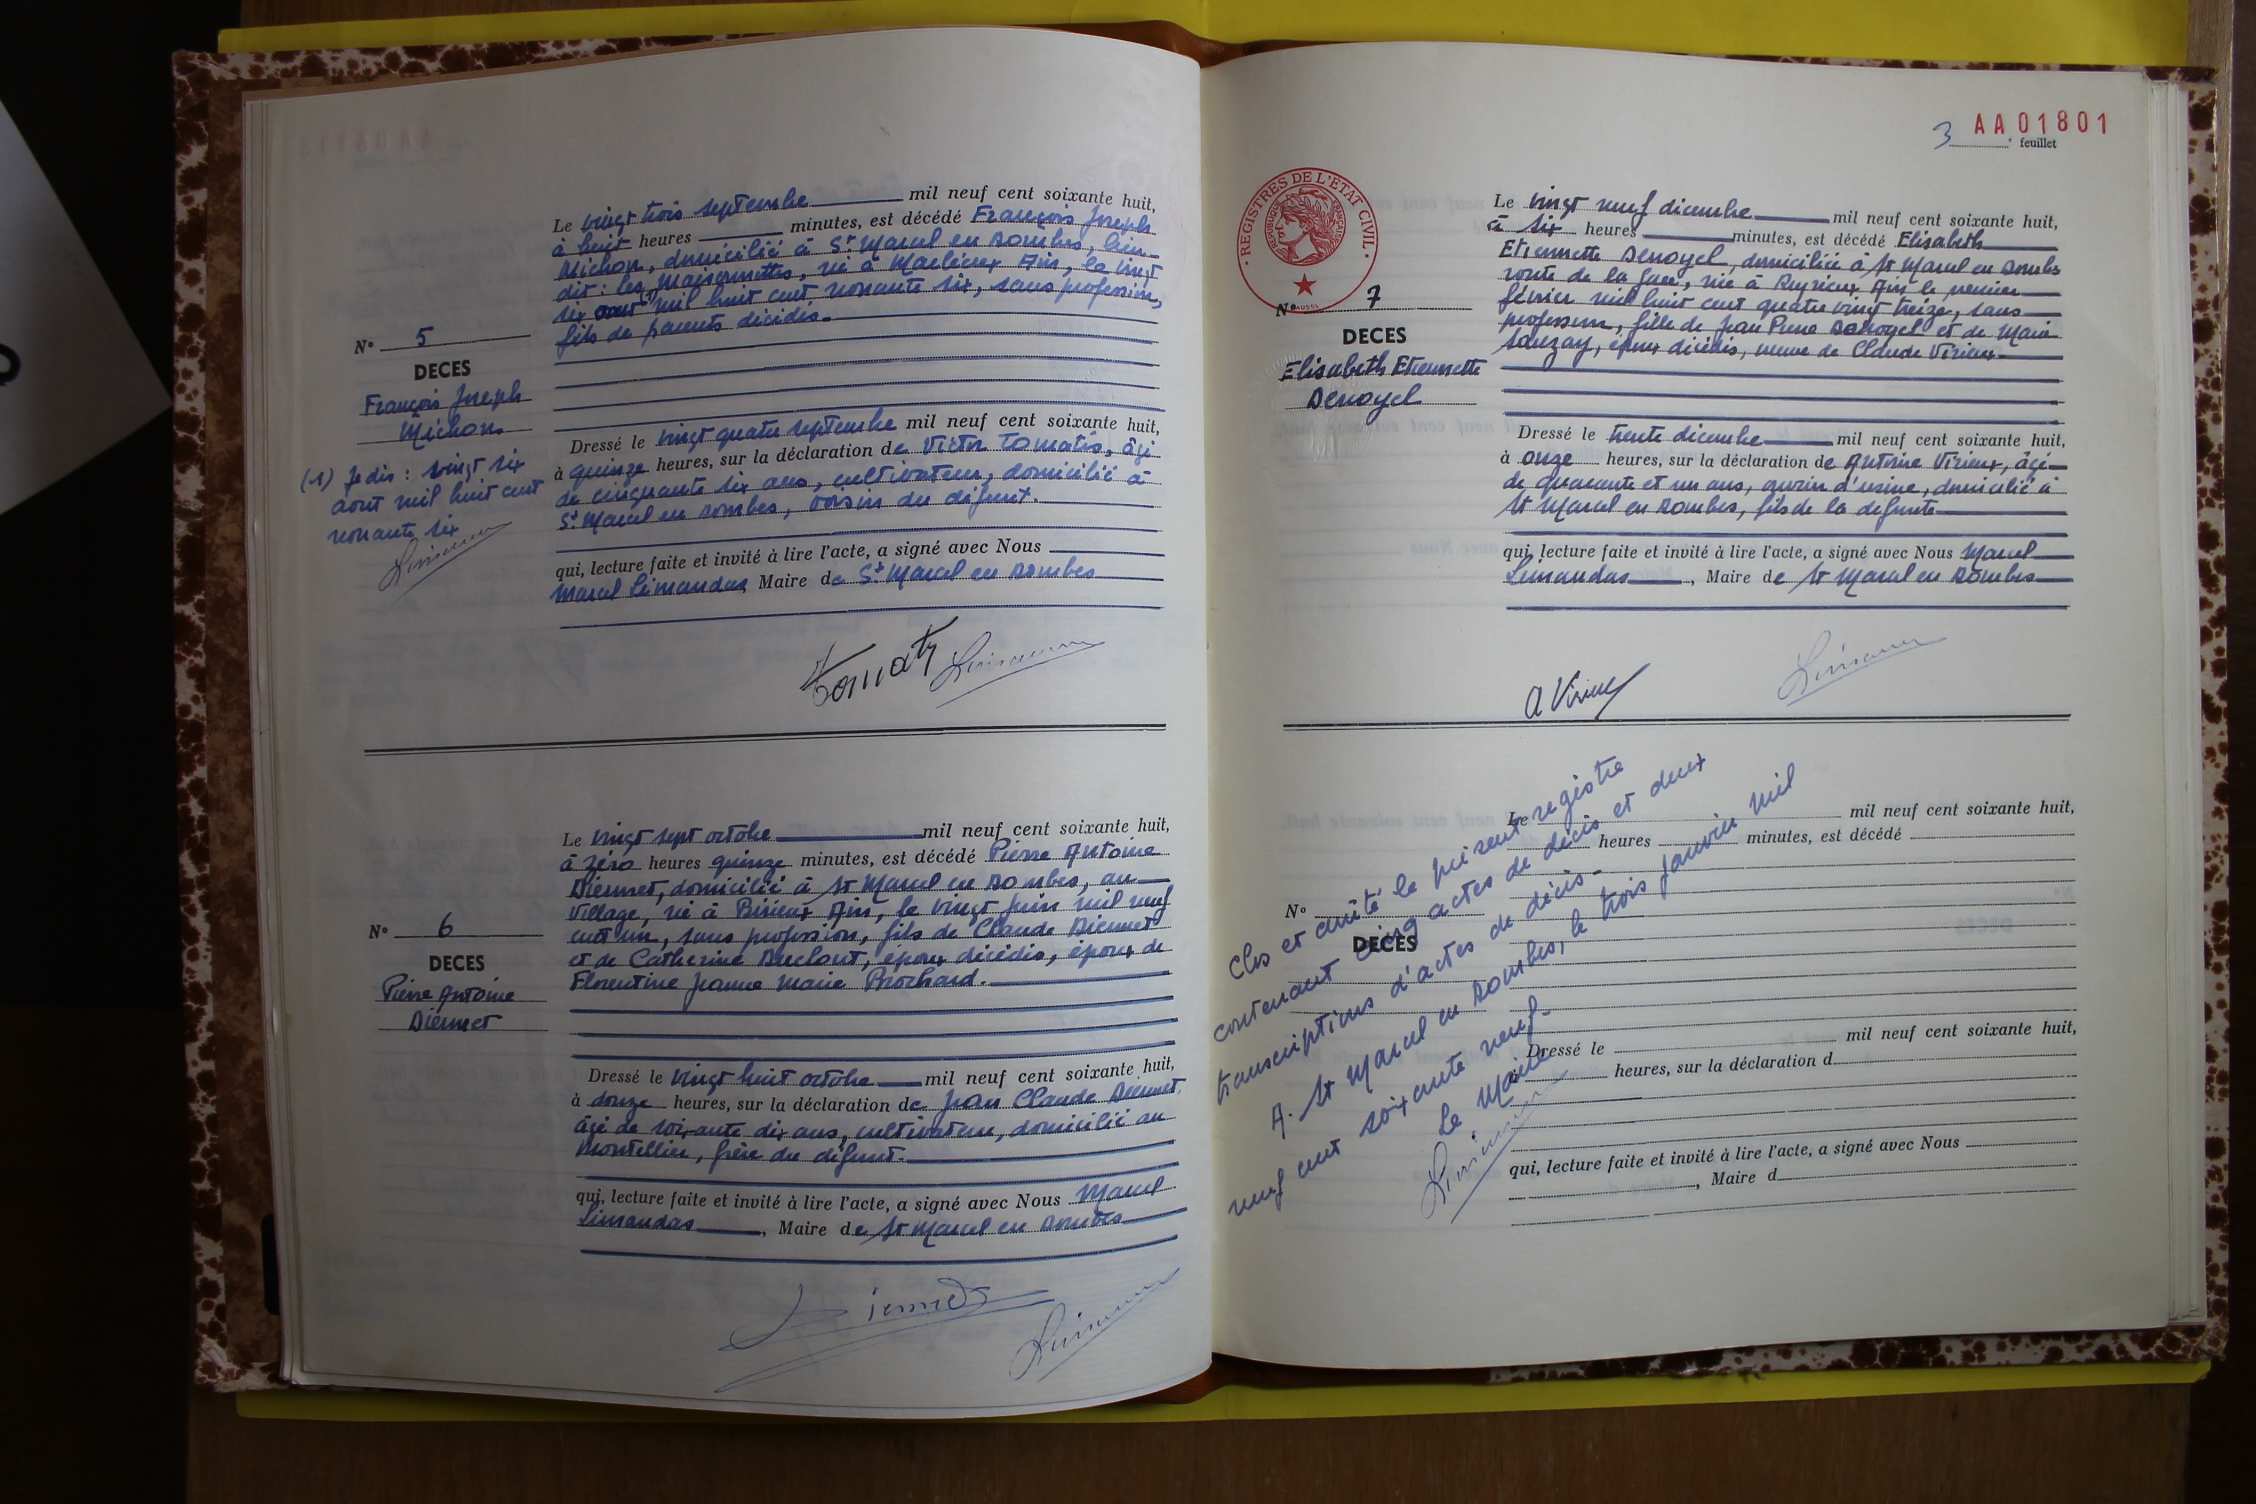 Le vingt trois septembre mil neuf cent soixante huit,
à huit heures minutes, est décédé François Joseph
Michon, domicilié à St Marcel en Dombes, lieu-
dit : les Maisonnettes, né à Marlieux Ain, le vingt
six août (1) mil huit cent nonante six, sans profession,
fils de parents décédés.
N° 5
DECES
François Joseph
Michon
(1) Je dis : vingt six
août mil huit cent
nonante six
Dressé le vingt quatre septembre mil neuf cent soixante huit,
à quinze heures, sur la déclaration de Victor Tomatis, âgé
de cinquante six ans, cultivateur, domicilié à
St Marcel en Dombes, voisin du défunt.
qui, lecture faite et invité à lire l'acte, a signé avec Nous
Marcel Limandas, Maire de St Marcel en Dombes
Le vingt sept octobre mil neuf cent soixante huit,
à zéro heures quinze minutes, est décédé Pierre Antoine
Diennet, domicilié à St Marcel en Dombes, au
Village, né à Birieux Ain, le vingt juin mil neuf
cent un, sans profession, fils de Claude Diennet
et de Catherine Duclout, époux décédés, époux de
Florentine Jeanne Marie Brochard.
N° 6
DECES
Pierre Antoine
Diennet
Dressé le vingt huit octobre mil neuf cent soixante huit,
à douze heures, sur la déclaration de Jean Claude Diennet,
âgé de soixante dix ans, cultivateur, domicilié au
Montellier, frère du défunt.
qui, lecture faite et invité à lire l'acte, a signé avec Nous Marcel
Limandas, Maire de St Marcel en Dombes
3 feuillet
AA01801
REGISTRES DE L'ÉTAT CIVIL
Le vingt neuf décembre mil neuf cent soixante huit,
à six heures minutes, est décédé Elisabeth
Etiennette Denoyel, domiciliée à St Marcel en Dombes
route de la gare, née à Reyrieux Ain le premier
février mil huit cent quatre vingt treize, sans
profession, fille de Jean Pierre Denoyel et de Marie
Sauzay, époux décédés, veuve de Claude Virieux
N° 7
DECES
Elisabeth Etiennette
Denoyel
Dressé le trente décembre mil neuf cent soixante huit,
à onze heures, sur la déclaration de Antoine Virieux, âgé
de quarante et un ans, ouvrier d'usine, domicilié à
St Marcel en Dombes, fils de la défunte
qui, lecture faite et invité à lire l'acte, a signé avec Nous Marcel
Limandas, Maire de St Marcel en Dombes
A Virieux
Le mil neuf cent soixante huit,
heures minutes, est décédé
N°
DECES
Dressé le mil neuf cent soixante huit,
heures, sur la déclaration d
qui, lecture faite et invité à lire l'acte, a signé avec Nous
, Maire d
Clos et arrêté le présent registre
contenant cinq actes de décès et deux
transcriptions d'actes de décès.
A. St Marcel en Dombes, le trois janvier mil
neuf cent soixante neuf.
Le Maire